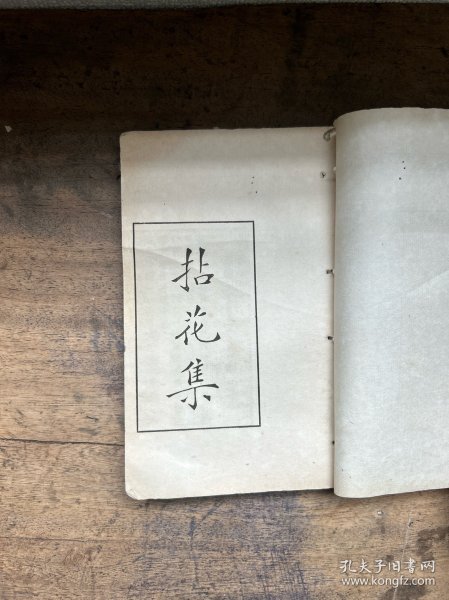 拈花集
孔夫子旧书网
www.kongfz.com